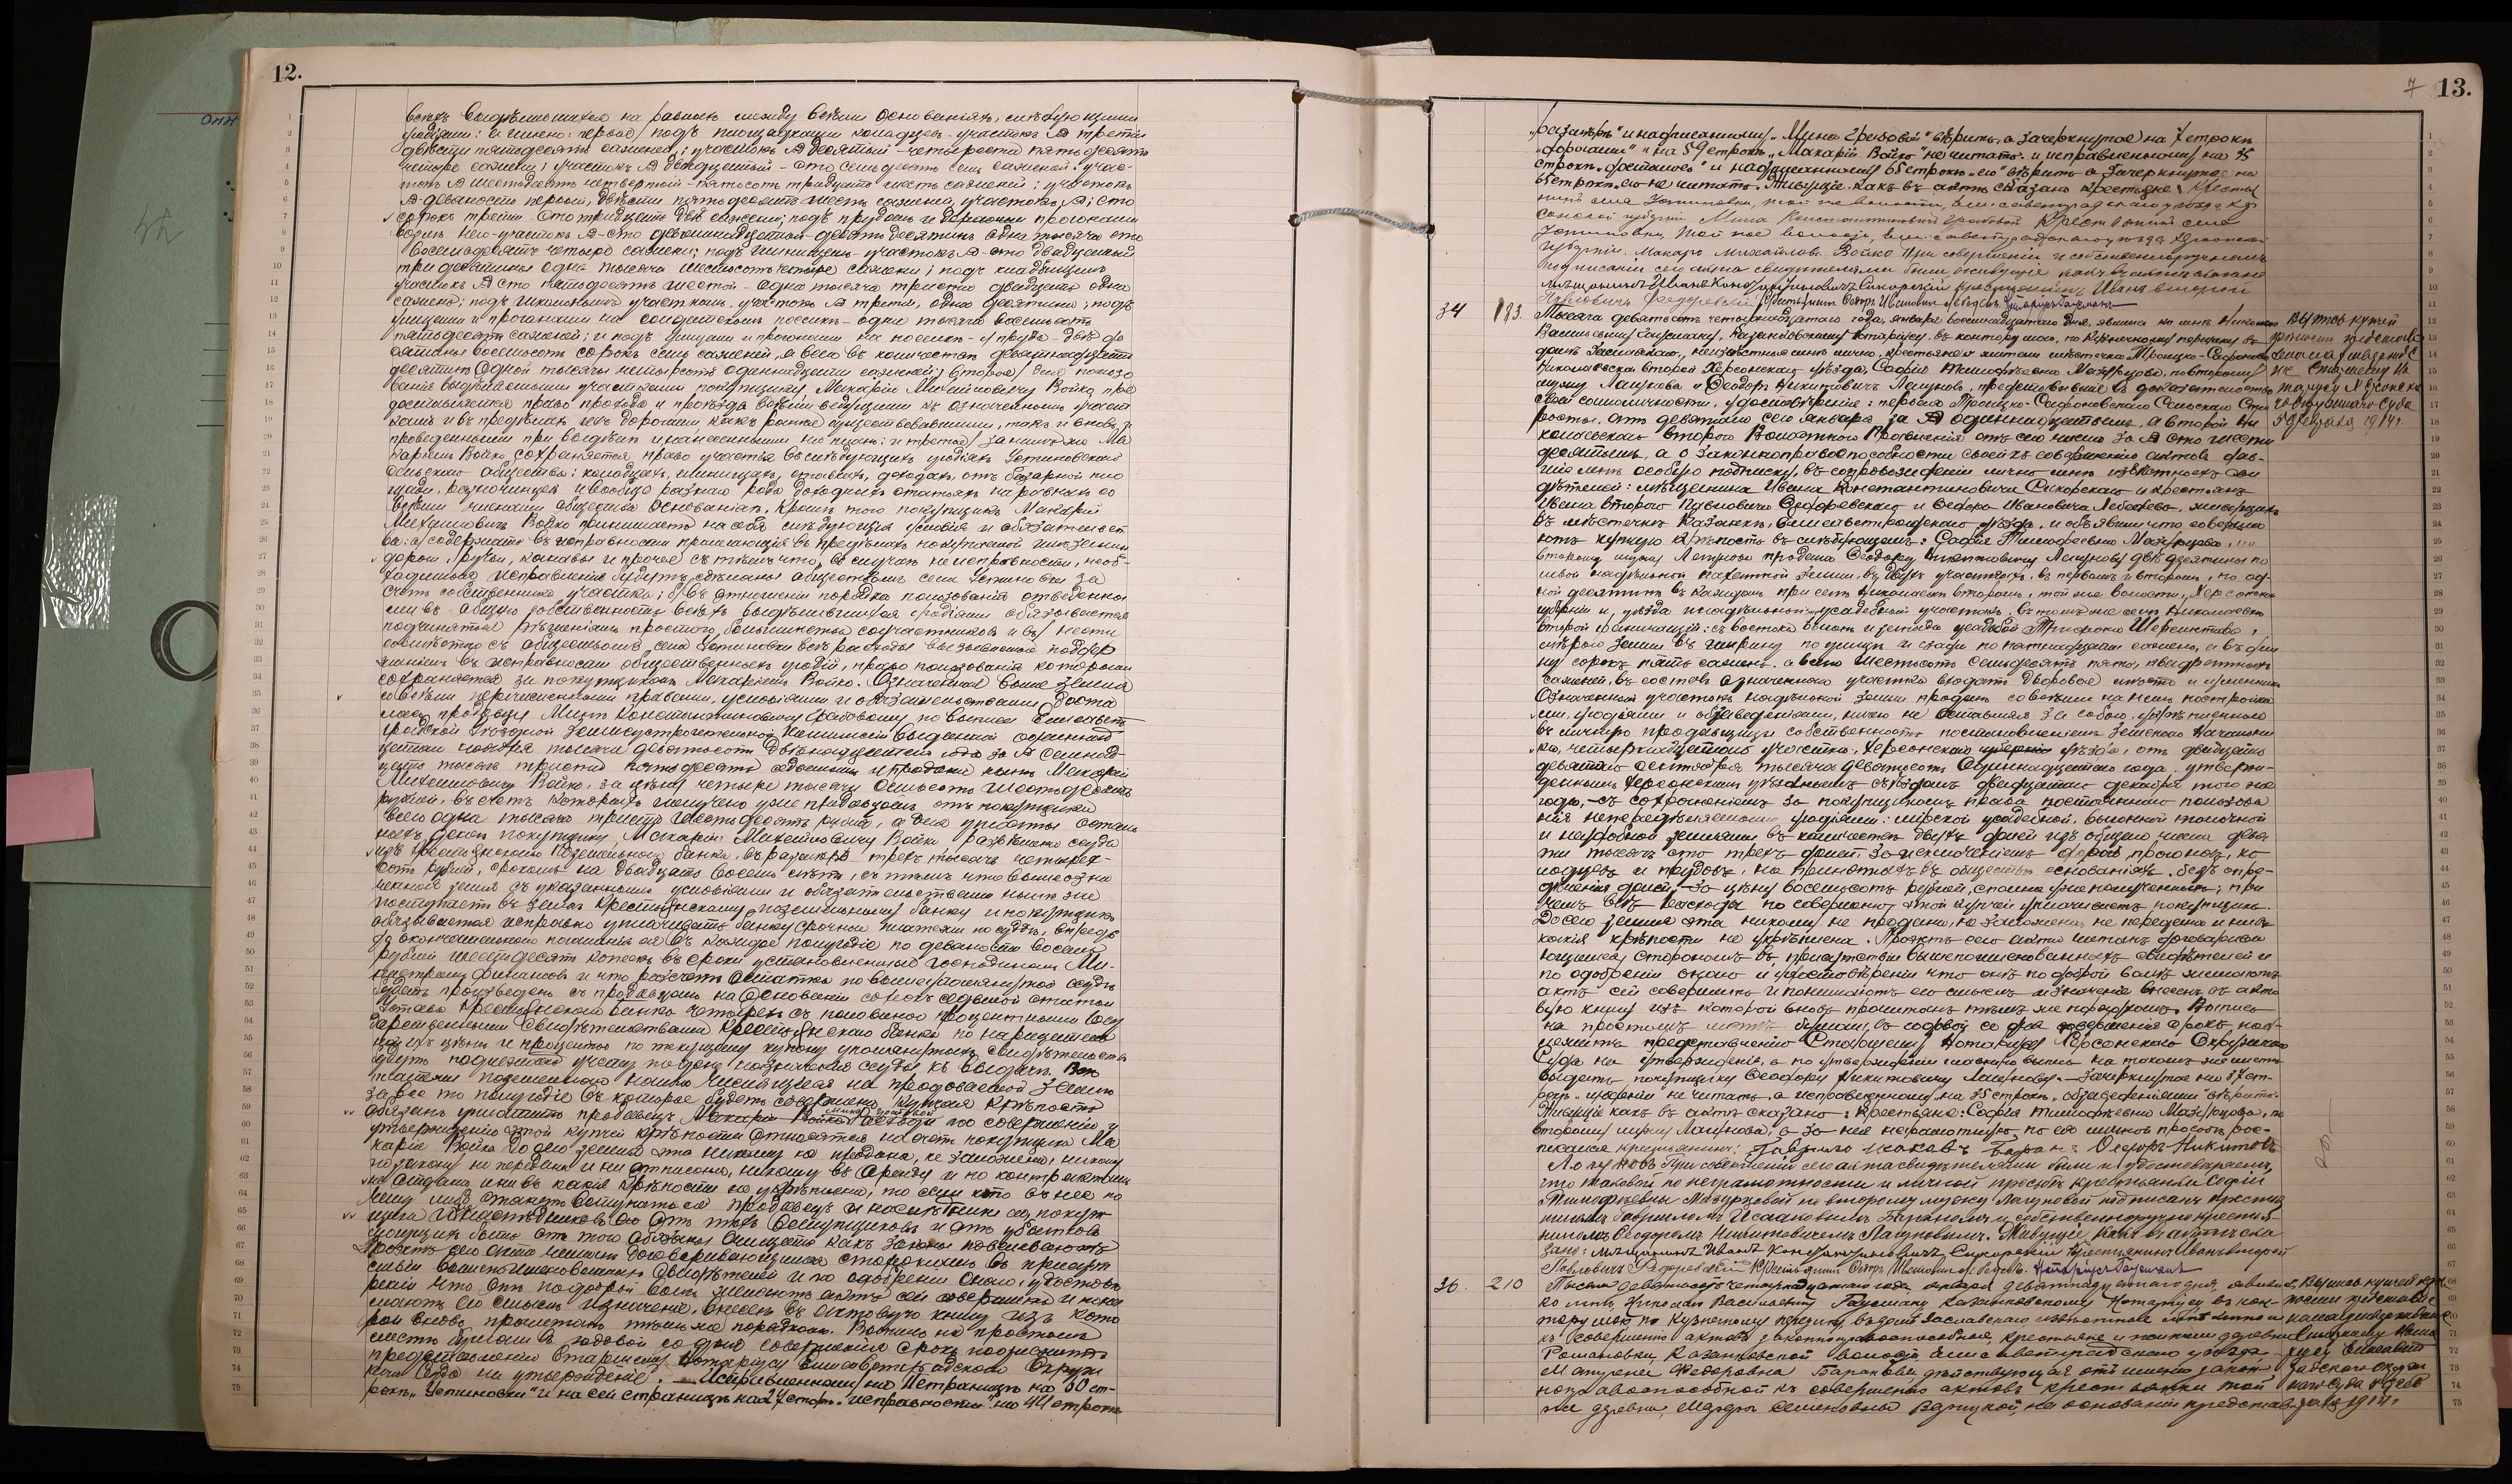 12.
всѣхъ выдѣлившихся на равныхъ между всѣми основаніяхъ, слѣдующими
угодьями: а именно: первое/ подъ площадками колодцевъ - участокъ № третій
двѣсти пятьдесятъ саженей; участокъ № десятый - четыреста пятьдесятъ
четыре сажени; участокъ № двадцатый - сто семьдесятъ семь саженей; учас-
токъ № шестьдесятъ четвертый - пятьсотъ тридцать шесть саженей; участокъ
№ девяносто первый, двѣсти пятьдесятъ шесть саженей, участокъ №, сто
сорокъ третій. Сто тридцать двѣ сажени; подъ прудомъ и
участокъ № сто девятнадцатый - десятинъ одна тысяча сто
восемьдесятъ четыре сажени; подъ участокъ № сто двадцатый
три десятины одна тысяча шестьсотъ четыре сажени; подъ кладбищемъ
участокъ № сто пятьдесятъ шестой - одна тысяча триста двадцать одна
сажень; подъ школьнымъ участкомъ, участокъ № третій, одна десятина; подъ
улицами и прогонами на солдатскомъ поселкѣ - одна тысяча восемьсотъ
пятьдесятъ саженей; и подъ улицами и прогонами на поселкѣ - у пруда - двѣ де
сятины восемьсотъ сорокъ семь саженей, а всего въ количествѣ девятнадцати
десятинъ одной тысячи четырехсотъ одиннадцати саженей; второе/ для пользо
ванія выдѣленными участками покупщику, Макарію Михайловичу Войко, пре
доставляется право прохода и проѣзда всѣми ведущими къ означеннымъ участ
камъ и въ предѣлахъ ихъ дорогами какъ ранѣе существовавшими, такъ и вновь
проведенными при выдѣлѣ и нанесенными на планъ: и третье/ за нимъ же Ма
каріемъ Войко сохраняется право участія въ слѣдующихъ угодьяхъ Устиновскаго
сельскаго общества: колодцахъ, доходахъ отъ базарной пло
щади, разночинцевъ и вообще разнаго рода доходныхъ статьяхъ наравнѣ со
всѣми членами общества основаніяхъ. Кромѣ того покупщикъ Макарій
Михайловичъ Войко принимаетъ на себя слѣдующія условія и обязательст
ва: а/ содержать въ исправности пролегающія въ предѣлахъ покупаемой имъ земли
дороги, ручьи, канавы и прочее съ тѣмъ что, въ случаѣ неисправности, необ-
ходимыя исправленія будутъ сдѣланы обществомъ села Устиновки за
счетъ собственника участка; б/ въ отношеніи порядка пользованія отведенны
ми въ общую собственность всѣхъ выдѣлившихся угодьями обязывается
подчиняться рѣшеніямъ простого большинства соучастниковъ и в/ нести
совмѣстно съ обществомъ села Устиновки всѣ расходы вызываемые поддер
жаніемъ въ исправности общественныхъ угодій, право пользованія которыми
сохраняется за покупщикомъ Макаріемъ Войко. Означенная выше земля
со всѣми перечисленными правами, условіями и обязательствами доста
лась продавцу Минѣ Константиновичу Грабовому по выписи Елисавет
градской Уѣздной Землеустроительной Коммиссіи выданной
ноября тысяча девятьсотъ двѣнадцатаго года за № семнад-
цать тысячъ триста пятьдесятъ и продана нынѣ Макарію
Михайловичу Войко, за цѣну четыре тысячи семьсотъ шестьдесятъ
рублей, въ счетъ которыхъ получено уже продавцомъ отъ покупщика
всего одна тысяча триста шестьдесятъ рублей, а для уплаты осталь
ныхъ денегъ покупщику Макарію Михайловичу Войко разрѣшена ссуда
изъ Крестьянскаго Поземельнаго банка, въ размѣрѣ трехъ тысячъ четырех-
сотъ рублей, срокомъ на двадцать восемь лѣтъ, съ тѣмъ что вышеозна
ченная земля съ указанными условіями и обязательствами нынѣ же
поступаетъ въ залогъ Крестьянскому поземельному банку и покупщикъ
обязывается исправно уплачивать банку срочные платежи по ссудѣ, впредь
до окончательнаго погашенія ея въ каждое полугодіе по девяносто восемь
рублей шестидесяти копѣекъ въ сроки установленные Господиномъ Ми-
нистромъ финансовъ и что разсчетъ остатка по вышеупомянутой ссудѣ
будетъ произведенъ съ продавцомъ на основаніи сорокъ седьмой статьи
Устава Крестьянскаго банка четырехъ съ половиною процентными Госу
дарственными свидѣтельствами Крестьянскаго банка по нарицательной
ихъ цѣнѣ и проценты по текущему купону упомянутыхъ свидѣтельствъ
будутъ подлежать учету по день назначенія ссуды къ выдачѣ. Всѣ
платежи поземельнаго налога числящіеся на продаваемой землѣ
за все то полугодіе въ которое будетъ совершена купчая крѣпость
обязанъ уплатить продавецъ Макарій Войко Мина Грабовой. Расходы по совершенію и
утвержденію этой купчей крѣпости относятся на счетъ покупщика Ма
карія Войко. До сего земля эта никому не продана, не заложена, никому
по закону не передана и не отписана, никому въ аренду и по контрактамъ
не отдана и ни въ какія крѣпости не укрѣплена, но если кто въ нее по
чему либо станетъ вступаться продавецъ и наслѣдники его, покуп
щика и наслѣдниковъ его отъ тѣхъ вступщиковъ и отъ убытковъ
могущихъ быть отъ того обязаны очищать какъ законы повелѣваютъ.
Проектъ сего акта читанъ договаривающимся сторонамъ въ присут
ствіи вышепоименованныхъ свидѣтелей и по одобреніи онаго и удостовѣ
реніи что они по доброй волѣ желаютъ актъ сей совершить и пони
маютъ его смыслъ и значеніе, внесенъ въ актовую книгу изъ кото
рой вновь прочитанъ тѣмъ же порядкомъ. Выпись на простомъ
листѣ бумаги въ годовой со дня совершенія срокъ подлежитъ
представленію Старшему Нотаріусу Елисаветградскаго Окруж
наго Суда на утвержденіе. — Исправленному на 11 страницѣ на 60 ст-
рокѣ „Устиновки" и на сей страницѣ на 27 строкѣ „исправности" на 44 строкѣ
7 13.
„размѣрѣ" и надписанному „Мина Грабовой" вѣрить, а зачеркнутое на 7 строкѣ
„дорогами" и на 59 строкѣ „Макарій Войко" не читать и исправленному на 35
строкѣ „досталась" и надписанному 65 строкѣ „его" вѣрить а зачеркнутое на
65 строкѣ его не читать. Живущіе какъ въ актѣ сказано крестьяне: Крестья
нинъ села Устиновки, той же волости, Елисаветградскаго уѣзда, Хер
сонской губерніи Мина Константиновичъ Грабовой. Крестьянинъ села
Устиновки, той же волости, Елисаветградскаго уѣзда Херсонской
губерніи. Макаръ Михайловъ Войко. При совершеніи и собственноручномъ
подписаніи сего акта свидѣтелями были живущіе какъ въ актѣ сказано
мѣщанинъ Иванъ Константиновичъ Сикорскій Крестьянинъ Иванъ второй
Павловичъ Федоревскій Крестьянинъ Ѳедоръ Ивановичъ Лебедевъ. Нотаріусъ Гаусманъ
34 193. Тысяча девятьсотъ четырнадцатаго года, января восемнадцатаго дня, явились ко мнѣ Николаю
Васильевичу Гаусману, Казанковскому Нотаріусу, въ контору мою, по Кузнечному переулку въ
домѣ Заславскаго, неизвѣстные мнѣ лично, крестьяне жители мѣстечка Троицко-Сафоново
Николаевка второй Херсонскаго уѣзда, Софія Тимофѣевна Мазурцова, по второму
мужу Лагунова и Ѳеодоръ Никитовичъ Лагуновъ, представившіе въ доказательство
своей самоличности, удостовѣренія: первая Троицко-Сафоновскаго Сельскаго Ста
росты, отъ девятаго сего января за № одиннадцатымъ, а второй Ни
колаевскаго второго Волостного Правленія отъ сего числа за № сто шести
десятымъ, а о законной правоспособности своей къ совершенію актовъ дав-
шіе мнѣ особую подписку, въ сопровожденіи лично мнѣ извѣстныхъ сви
дѣтелей: мѣщанина Ивана Константиновича Сикорскаго и крестьянъ
Ивана второго Павловича Федоревскаго и Ѳедора Ивановича Лебедева, живущихъ
въ мѣстечкѣ Казанкѣ, Елисаветградскаго уѣзда, и объявили что соверша
ютъ купчую крѣпость въ слѣдующемъ: Софія Тимофѣевна Мазурцова, по
второму мужу Лагунова продала Ѳеодору Никитовичу Лагунову двѣ десятины по
левой надѣльной пахатной земли, въ двухъ участкахъ, въ первомъ и второмъ, по од-
ной десятинѣ въ каждомъ при селѣ Николаевкѣ второмъ, той же волости, Херсонской
губерніи и уѣзда и надѣльный усадебный участокъ, въ томъ же селѣ Николаевкѣ
второй граничащій: съ востока и запада усадьбой Трифона Шереметова,
мѣрою земли въ ширину по улицѣ и сзади по пятнадцати саженъ, а въ дли
ну сорокъ пять саженъ, а всего шестьсотъ семьдесятъ пять, квадратныхъ
саженей, въ составъ означеннаго участка входятъ дворовое мѣсто и
Означенный участокъ надѣльной земли проданъ со всѣми на немъ постройка
ми, угодьями и обзаведеніями, ничего не оставляя за собою, укрѣпленнаго
въ личную продавщицы собственность постановленіемъ Земскаго Начальни
ка, четырнадцатаго участка, Херсонскаго губерніи уѣзда, отъ двадцать
девятаго сентября тысяча девятьсотъ одиннадцатаго года, утверж-
деннымъ Херсонскимъ уѣзднымъ съѣздомъ двадцатаго декабря того же
года, - съ сохраненіемъ за покупщикомъ права постояннаго пользова
нія непередѣляемыми угодьями: мірской усадебной, выгонной толочной
и неудобной землями въ количествѣ двухъ долей изъ общаго числа девя
ти тысячъ сто трехъ долей, за исключеніемъ дорогъ, прогоновъ, ко
лодцевъ и прудовъ, на принятыхъ въ обществѣ основаніяхъ, безъ опре-
дѣленія долей. За цѣну восемьсотъ рублей, сполна уже полученныхъ; при
чемъ всѣ расходы по совершенію этой купчей уплачиваетъ покупщикъ.
До сего земля эта никому не продана, не заложена, не передана и ни въ
какія крѣпости не укрѣплена. Проэктъ сего акта читанъ договарива
ющимся сторонамъ въ присутствіи вышепоименованныхъ свидѣтелей и
по одобреніи онаго и удостовѣреніи что они по доброй волѣ желаютъ
актъ сей совершить и понимаютъ его смыслъ и значеніе внесенъ въ акто
вую книгу изъ которой вновь прочитанъ тѣмъ же порядкомъ. Выпись
на простомъ листѣ бумаги, въ годовой со дня совершенія срокъ, под-
лежитъ представленію Старшему Нотаріусу Херсонскаго Окружнаго
Суда на утвержденіе, а по утвержденіи главную выпись на такомъ же листѣ
выдать покупщику Ѳеодору Никитовичу Лагунову. — Зачеркнутое на 37 ст-
рокѣ „губерніи" не читать, а исправленному на 35 строкѣ „обзаведеніями" вѣрить.
Живущіе какъ въ актѣ сказано: Крестьяне: Софія Тимофѣевна Мазурцова, по
второму мужу Лагунова, а за нее неграмотную, по ея личной просьбѣ рос-
писался крестьянинъ: Гаврило Исаковъ Баранъ: Ѳедоръ Никитовъ
Лагуновъ. При совершеніи сего акта свидѣтелями были и удостовѣряемъ,
что таковой по неграмотности и личной просьбѣ крестьянки Софіи
Тимофѣевны Мазурцовой по второму мужу Лагуновой подписанъ крестья
ниномъ Гавриломъ Исааковымъ Бараномъ и собственноручно крестья-
ниномъ Ѳеодоромъ Никитовичемъ Лагуновымъ. Живущіе какъ въ актѣ ска
зано: мѣщанинъ Иванъ Константиновичъ Сикорскій Крестьянинъ Иванъ второй
Павловичъ Федоревскій Крестьянинъ Ѳедоръ Ивановичъ Лебедевъ. Нотаріусъ Гаусманъ
Выпись купчей
крѣпости
на утвержденіе
Старшему Но
таріусу Херсонска
го Окружнаго Суда
5 февраля 1914 г.
36. 210 Тысяча девятьсотъ четырнадцатаго года, января девятнадцатаго дня, явились
ко мнѣ, Николаю Васильевичу Гаусману Казанковскому Нотаріусу въ кон-
тору мою по Кузнечному переулку въ домѣ Заславскаго извѣстные мнѣ лично и
къ совершенію актовъ законно правоспособные, крестьяне и жители деревни
Романовки, Казанковской волости Елисаветградскаго уѣзда
Федоровна Баранова, дѣйствующая отъ имени закон-
но правоспособной къ совершенію актовъ крестьянки той
же деревни, Семеновны Варицкой, на основаніи представ
Выпись купчей крѣ
пости
на утвержденіе
Старшему Нота
ріусу Елисавет
градскаго Окруж
наго Суда 8 фев
раля 1914 г.